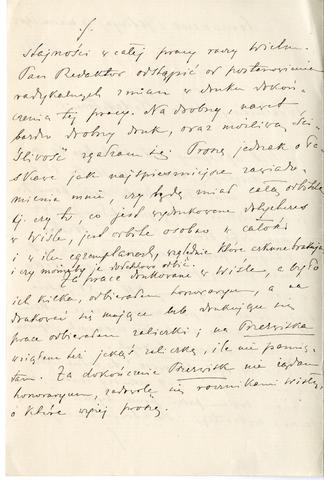 stajności w całej pracy raczy Wielm.
Pan Redaktor odstąpić od postanowienia
radykalnych zmian w druku dokoń-
czenia tej pracy. Na drobny, nawet
bardzo drobny druk, oraz możliwą ści-
śliwość zgadzam się. Proszę jednak o ła-
skawe jak najśpieszniejsze zawiado-
mienie mnie, czy będę miał całą odbitkę
tj. czy to, co jest wydrukowane dotychczas
w Wiśle, jest odbite osobno w całości
i w ilu egzemplarzach, względnie które arkusze brakują
i czy możnaby je dodatkowo odbić.
Za prace drukowane w Wiśle, a było
ich kilka, odbierałem honoraryum, a na
drukować się mające lub drukujące się
prace odbierałem zaliczki; na Przezwiska
wziąłem też jakąś zaliczkę, ile nie pamię-
tam. Za dokończenie Przezwisk nie żądam
honoraryum, zadowolę się rocznikami Wisły,
o które wyżej proszę.